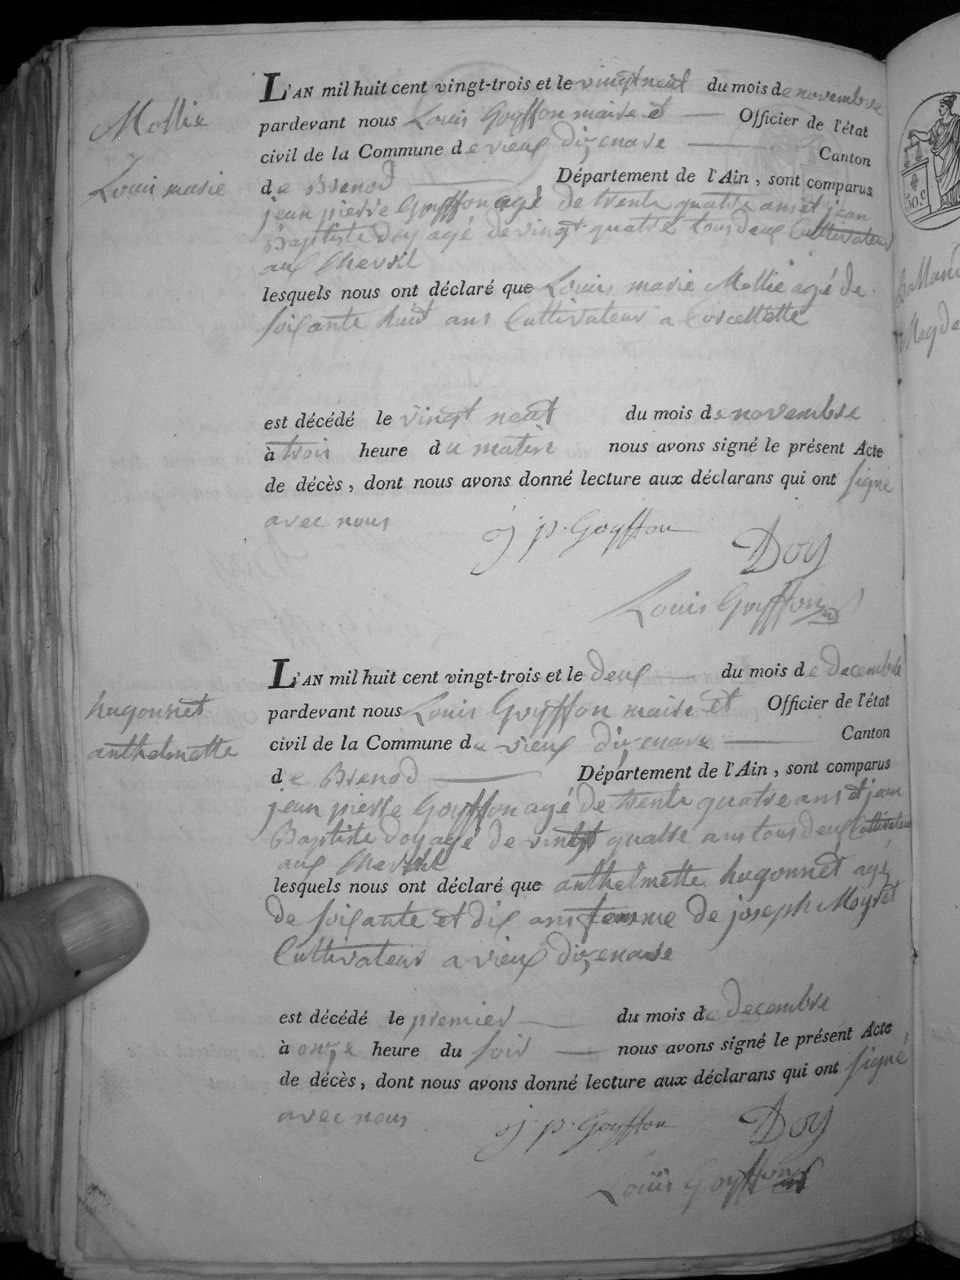 Mollie
Louis marie
L'AN mil huit cent vingt-trois et le vingt neuf du mois de novembre
pardevant nous Louis Goyffon maire et Officier de l'état
civil de la Commune de vieux dizenave Canton
de Brenod Département de l'Ain, sont comparus
jean pierre Goyffon agé de trente quatre ans et jean
Baptiste Doy agé de vingt quatre tous deux Cultivateurs
aux
lesquels nous ont déclaré que Louis marie Mollie agé de
soixante huit ans Cultivateur a
est décédé le vingt neuf du mois de novembre
à trois heure du matin nous avons signé le présent Acte
de décès, dont nous avons donné lecture aux déclarans qui ont signé
avec nous
j p. Goyffon
Doy
Louis Goyffon
hugonnet
anthelmette
L'AN mil huit cent vingt-trois et le deux du mois de decembre
pardevant nous Louis Goyffon maire et Officier de l'état
civil de la Commune de vieux dizenave Canton
de Brenod Département de l'Ain, sont comparus
jean pierre Goyffon agé de trente quatre ans et jean
Baptiste doy agé de vingt quatre ans tous deux Cultivateurs
aux
lesquels nous ont déclaré que anthelmette hugonnet agé
de soixante et dix ans femme de joseph Moyret
Cultivateur a vieux dizenave
est décédé le premier du mois de decembre
à onze heure du soir nous avons signé le présent Acte
de décès, dont nous avons donné lecture aux déclarans qui ont signé
avec nous
j. p. Goyffon
Doy
Louis Goyffon